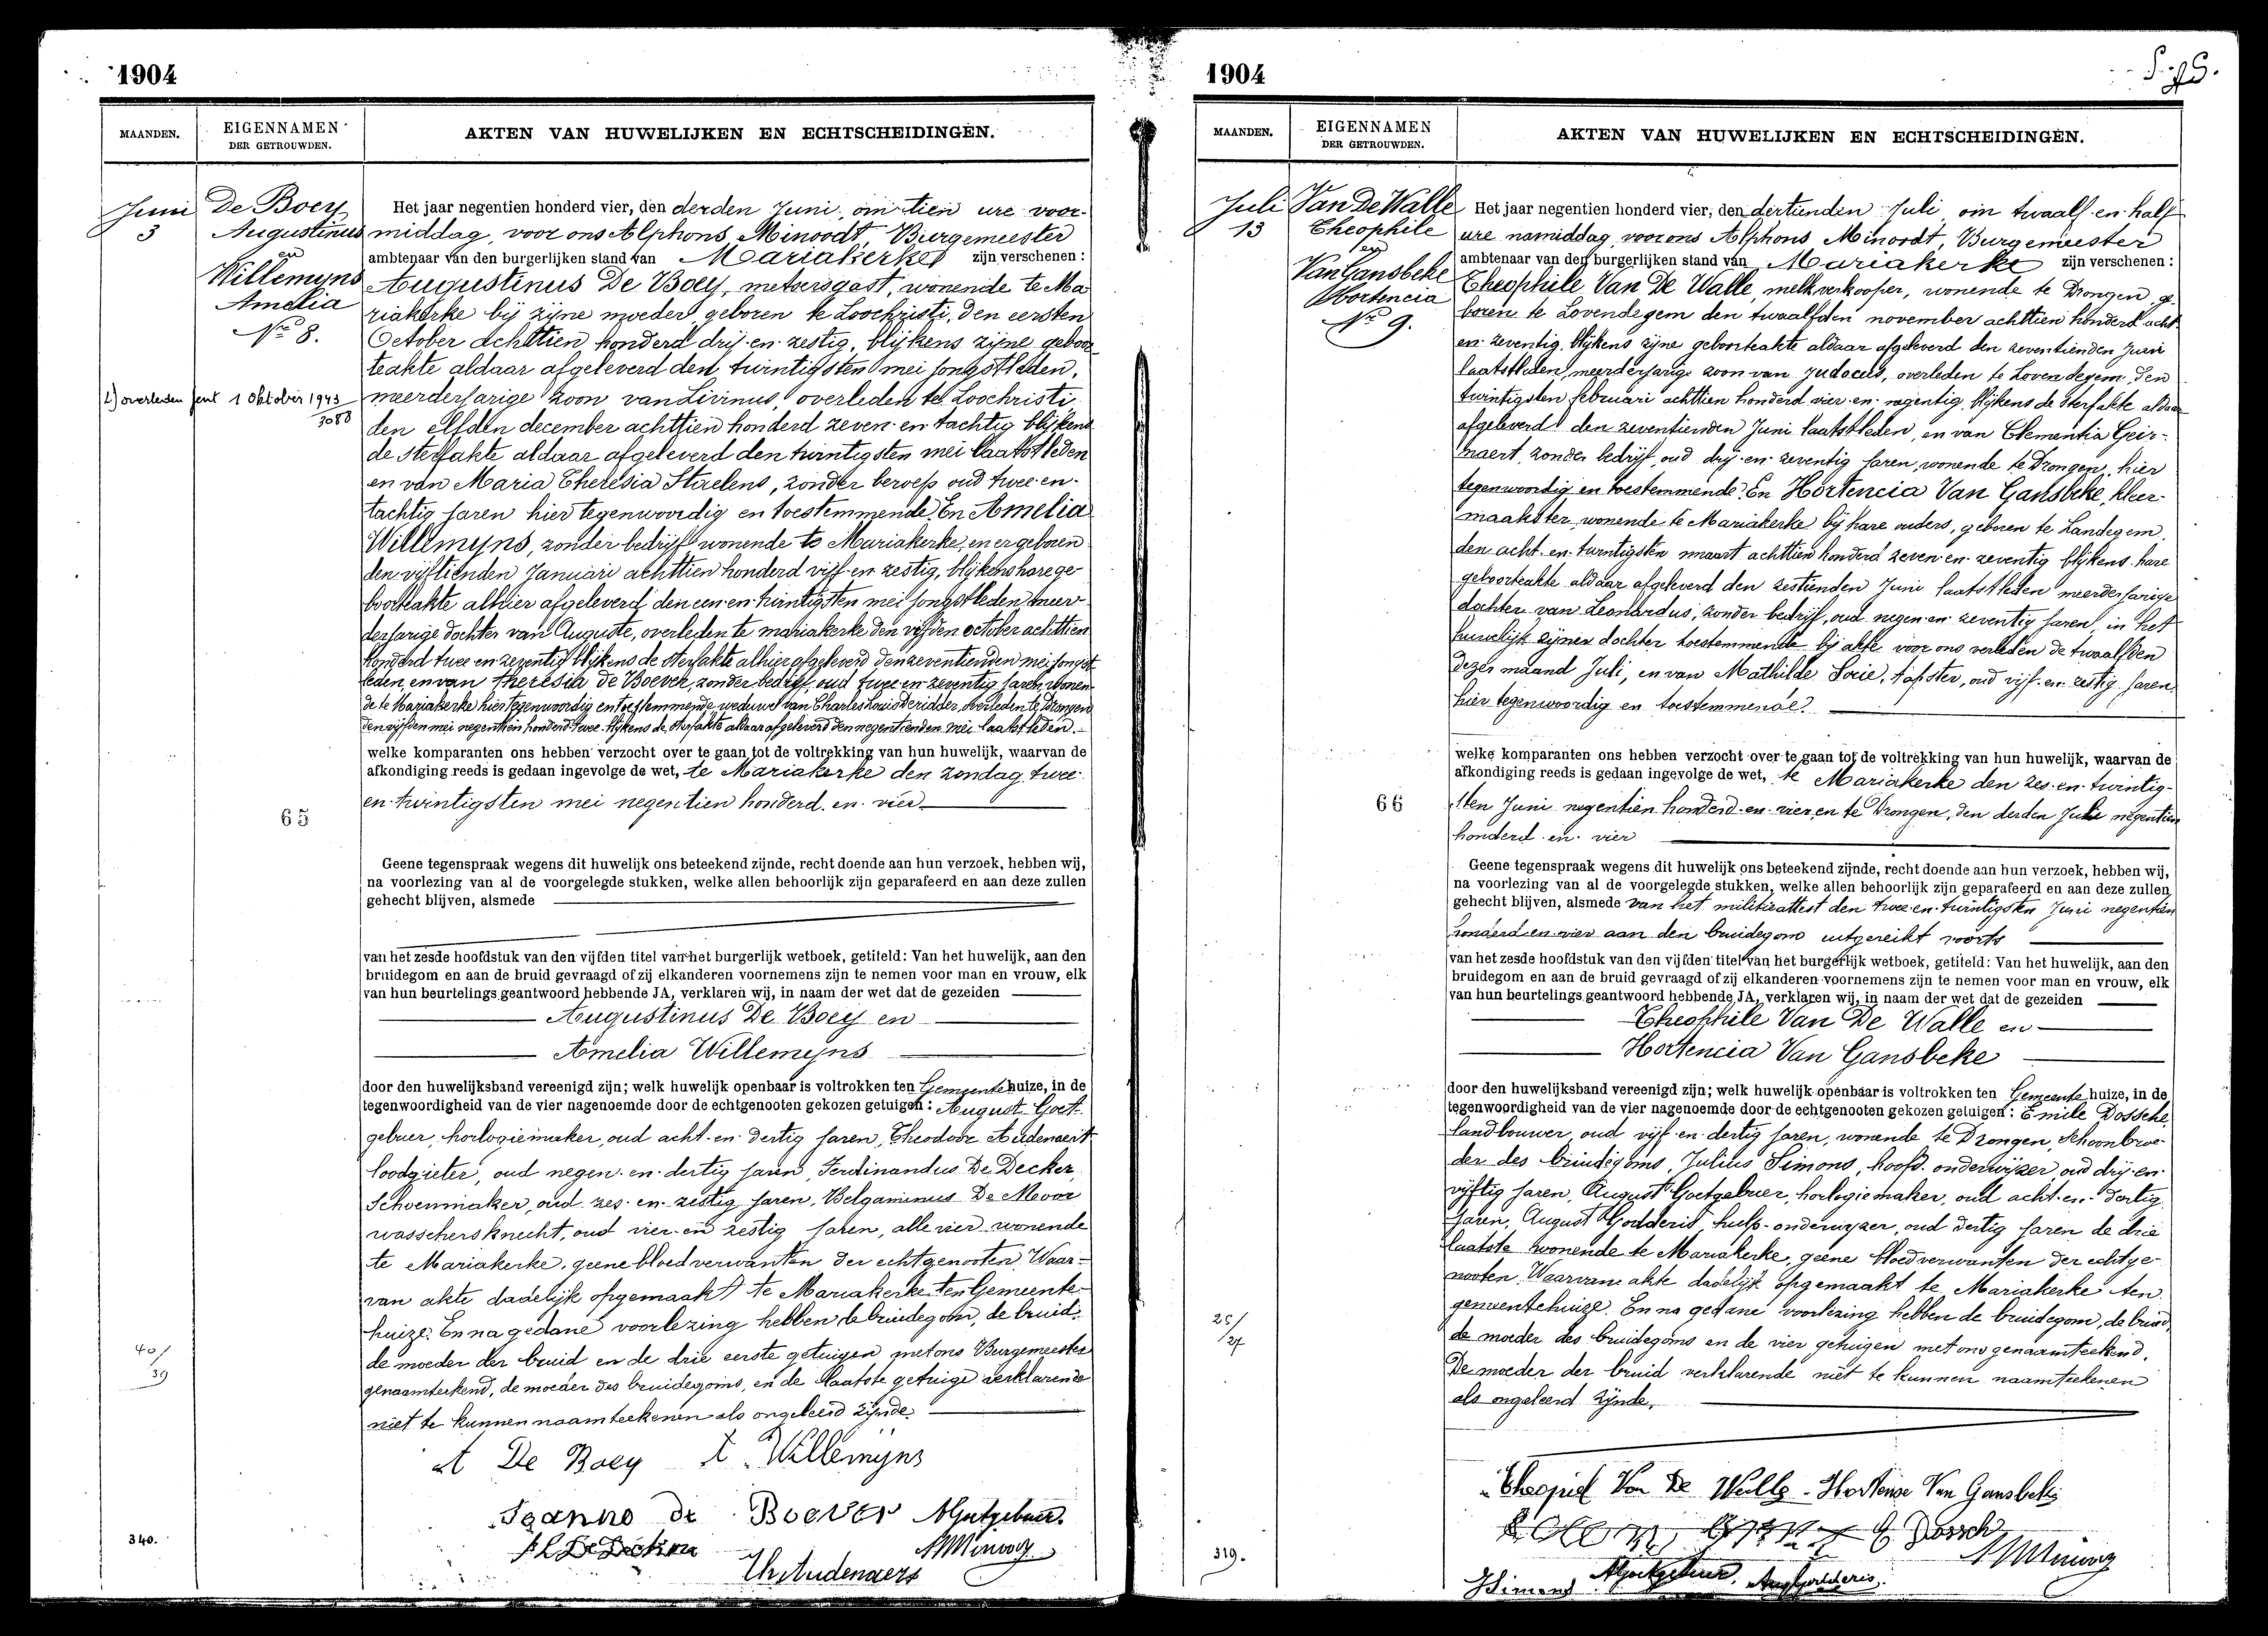 1904
MAANDEN.
EIGENNAMEN
DER GETROUWDEN.
AKTEN VAN HUWELIJKEN EN ECHTSCHEIDINGEN.
Juni
3
De Boey
Augustinus
en
Willemyns
Amelia
No 8.
overleden Gent 1 Oktober 1943
3058
65
40/
39
340.
Het jaar negentien honderd vier, den derden Juni, om tien ure voor-
middag, voor ons Alphons Minoodt, Burgemeester
ambtenaar van den burgerlijken stand van Mariakerke zijn verschenen:
Augustinus De Boey, metsersgast, wonende te Ma
riakerke bij zijne moeder, geboren te Loochristi, den eersten
October achttien honderd drij-en-zestig, blijkens zijne geboor
teakte aldaar afgeleverd den twintigsten mei jongstleden,
meerderjarige zoon van Livinus, overleden te Loochristi
den elfden december achttien honderd zeven-en-tachtig blijkens
de sterfakte aldaar afgeleverd den twintigsten mei laatstleden
en van Maria Theresia Staelens, zonder beroep oud twee-en-
tachtig jaren hier tegenwoordig en toestemmende. En Amelia
Willemyns, zonder bedrijf wonende te Mariakerke, en er geboren
den vijftienden Januari achttien honderd vijf-en-zestig, blijkens hare ge
boorteakte alhier afgeleverd den een-en-twintigsten mei jongstleden meer
derjarige dochter van Auguste, overleden te mariakerke den vijfden october achttien
honderd twee-en-zeventig blijkens de sterfakte alhier afgeleverd den zeventienden mei jongst
leden, en van Theresia De Boever, zonder bedrijf, oud twee-en-zeventig jaren, wonen
de te Mariakerke hier tegenwoordig en toestemmende, weduwe van Charles Louis Deridder, overleden te Drongen
den vijfden mei negentien honderd twee blijkens de sterfakte aldaar afgeleverd den negentienden mei laatstleden.
welke komparanten ons hebben verzocht over te gaan tot de voltrekking van hun huwelijk, waarvan de
afkondiging reeds is gedaan ingevolge de wet, te Mariakerke den zondag twee-
en-twintigsten mei negentien honderd en vier
Geene tegenspraak wegens dit huwelijk ons beteekend zijnde, recht doende aan hun verzoek, hebben wij,
na voorlezing van al de voorgelegde stukken, welke allen behoorlijk zijn geparafeerd en aan deze zullen
gehecht blijven, alsmede
van het zesde hoofdstuk van den vijfden titel van het burgerlijk wetboek, getiteld: Van het huwelijk, aan den
bruidegom en aan de bruid gevraagd of zij elkanderen voornemens zijn te nemen voor man en vrouw, elk
van hun beurtelings geantwoord hebbende JA, verklaren wij, in naam der wet dat de gezeiden
Augustinus De Boey en
Amelia Willemyns
door den huwelijksband vereenigd zijn; welk huwelijk openbaar is voltrokken ten Gemeentehuize, in de
tegenwoordigheid van de vier nagenoemde door de echtgenooten gekozen getuigen: August Goet-
gebuer, horlogiemaker, oud acht-en-dertig jaren, Theodoor Audenaert
loodgieter, oud negen-en-dertig jaren, Ferdinandus De Decker,
Schoenmaker, oud zes-en-zestig jaren, Belgaminus De Moor
wasschersknecht, oud vier-en-zestig jaren, alle vier wonende
te Mariakerke, geene bloedverwanten der echtgenooten. Waar-
van akte dadelijk opgemaakt te Mariakerke ten Gemeente-
huize. En na gedane voorlezing hebben de bruidegom, de bruid,
de moeder der bruid en de drie eerste getuigen met ons Burgemeester
genaamteekend, de moeder des bruidegoms, en de laatste getuige verklarende
niet te kunnen naamteekenen als ongeleerd zijnde.
A De Boey A. Willemyns
de Boever AGoetgebuer.
AMinoodt
Th Audenaert
1904
MAANDEN.
EIGENNAMEN
DER GETROUWDEN.
AKTEN VAN HUWELIJKEN EN ECHTSCHEIDINGEN.
Juli
13
Van De Walle
Theophile
en
Van Gansbeke
Hortencia
No 9.
66
25/
27
319.
Het jaar negentien honderd vier, den dertienden Juli om twaalf-en-half
ure namiddag voor ons Alphons Minoodt, Burgemeester
ambtenaar van den burgerlijken stand van Mariakerke zijn verschenen:
Theophile Van De Walle, melkverkooper, wonende te Drongen ge-
boren te Lovendegem den twaalfden november achttien honderd acht-
en-zeventig, blijkens zijne geboorteakte aldaar afgeleverd den zeventienden Juni
laatstleden, meerderjarige zoon van Judocus, overleden te Lovendegem den
twintigsten februari achttien honderd vier-en-negentig, blijkens de sterfakte aldaar
afgeleverd den zeventienden Juni laatstleden, en van Clementia Geir-
naert, zonder bedrijf, oud drij-en-zeventig jaren, wonende te Drongen, hier
tegenwoordig en toestemmende. En Hortencia Van Gansbeke, kleer-
maakster, wonende te Mariakerke bij hare ouders, geboren te Landegem
den acht-en-twintigsten maart achttien honderd zeven-en-zeventig blijkens hare
geboorteakte aldaar afgeleverd den zestienden Juni laatstleden meerderjarige
dochter van Leonardus, zonder bedrijf, oud negen-en-zeventig jaren, in het
huwelijk zijner dochter toestemmende bij akte voor ons verleden de twaalfden
dezer maand Juli, en van Mathilde Sorie, tapster, oud vijf-en-zestig jaren
hier tegenwoordig en toestemmende.
welke komparanten ons hebben verzocht over te gaan tot de voltrekking van hun huwelijk, waarvan de
afkondiging reeds is gedaan ingevolge de wet, te Mariakerke den zes-en-twintig-
sten Juni negentien honderd-en-vier, en te Drongen, den derden Juli negentien
honderd en vier
Geene tegenspraak wegens dit huwelijk ons beteekend zijnde, recht doende aan hun verzoek, hebben wij,
na voorlezing van al de voorgelegde stukken, welke allen behoorlijk zijn geparafeerd en aan deze zullen
gehecht blijven, alsmede van het militieattest den twee-en-twintigsten Juni negentien
honderd-en-vier aan den bruidegom uitgereikt voorts
van het zesde hoofdstuk van den vijfden titel van het burgerlijk wetboek, getiteld: Van het huwelijk, aan den
bruidegom en aan de bruid gevraagd of zij elkanderen voornemens zijn te nemen voor man en vrouw, elk
van hun beurtelings geantwoord hebbende JA, verklaren wij, in naam der wet dat de gezeiden
Theophile Van De Walle en
Hortencia Van Gansbeke
door den huwelijksband vereenigd zijn; welk huwelijk openbaar is voltrokken ten Gemeentehuize, in de
tegenwoordigheid van de vier nagenoemde door de echtgenooten gekozen getuigen: Emile Dossche
landbouwer, oud vijf-en-dertig jaren, wonende te Drongen, schoonbroe-
der des bruidegoms, Julius Simons, hoofd-onderwijzer, oud drij-en-
vijftig jaren, August Goetgebuer, horlogiemaker, oud acht-en-dertig
jaren, August Godderis, hulp-onderwyzer, oud dertig jaren de drie
laatste wonende te Mariakerke, geene bloedverwanten der echtge-
nooten. Waarvan akte dadelijk opgemaakt te Mariakerke ten
gemeentehuize. En na gedane voorlezing hebben de bruidegom, de bruid,
de moeder des bruidegoms en de vier getuigen met ons genaamteekend.
De moeder der bruid verklarende niet te kunnen naamteekenen
als ongeleerd zijnde.
Van De Walle - Hortense Van Gansbeke
E Dossche
AMinoodt
JSimons AGoetgebuer. Aug Godderis.